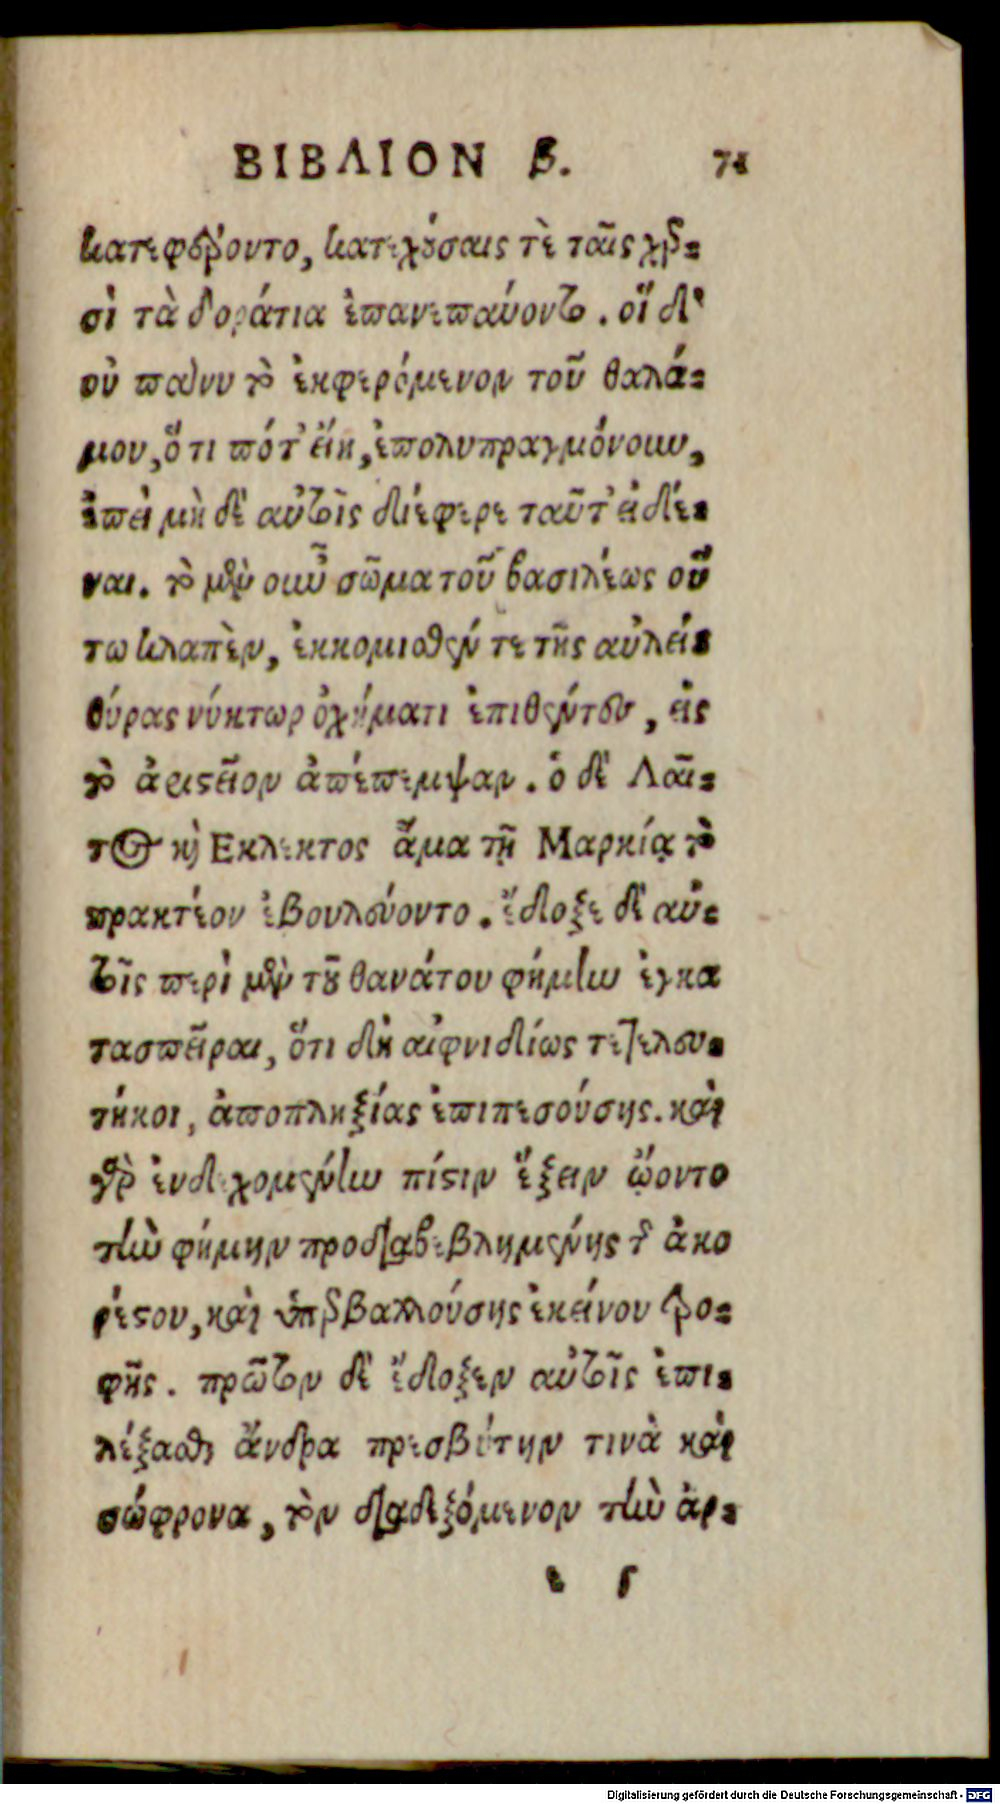 ΒΙΒΛΙΟΝ β. 71
κατεφέροντο, κατεχούσαις τὲ ταῖς χερ-
σὶ τὰ δοράτια ἐπανεπαύοντο. οἵ δ'
οὐ πάνυ τὸ ἐκφερόμενον τοῦ θαλά-
μου, ὅτι πότ' εἴη, ἐπολυπραγμόνουν,
ἐπεὶ μὴ δὲ αὐτοῖς διέφερε ταῦτ' εἰδέ-
ναι. τὸ μὲν οὖν σῶμα τοῦ βασιλέως οὕ
τω κλαπὲν, ἐκκομισθέν τε τῆς αὐλείε
θύρας νύκτωρ ὀχήματι ἐπιθέντες, εἰς
τὸ ἀριστεῖον ἀπέπεμψαν. ὁ δὲ Λαῖ-
τος καὶ Εκλεκτος ἅμα τῇ Μαρκίᾳ τὸ
πρακτέον ἐβουλεύοντο. ἔδοξε δὲ αὐ-
τοῖς περὶ μὲν τοῦ θανάτου φήμην ἐγκα
τασπεῖραι, ὅτι δὴ αἰφνιδίως τετελευ-
τήκοι, ἀποπληξίας ἐπιπεσούσης. καὶ
γὰρ ἐνδεχομένην πίστιν ἕξειν ᾤοντο
τὴν φήμην προδιαβεβλημένης τῆς ἀκο
ρέστου, καὶ ὑπερβαλλούσης ἐκείνου τρο-
φῆς. πρῶτον δὲ ἔδοξεν αὐτοῖς ἐπι-
λέξασθαι ἄνδρα πρεσβύτην τινὰ καὶ
σώφρονα, τὸν διαδεξόμενον τὴν ἀρ-
e 5
Digitalisierung gefördert durch die Deutsche Forschungsgemeinschaft - DFG